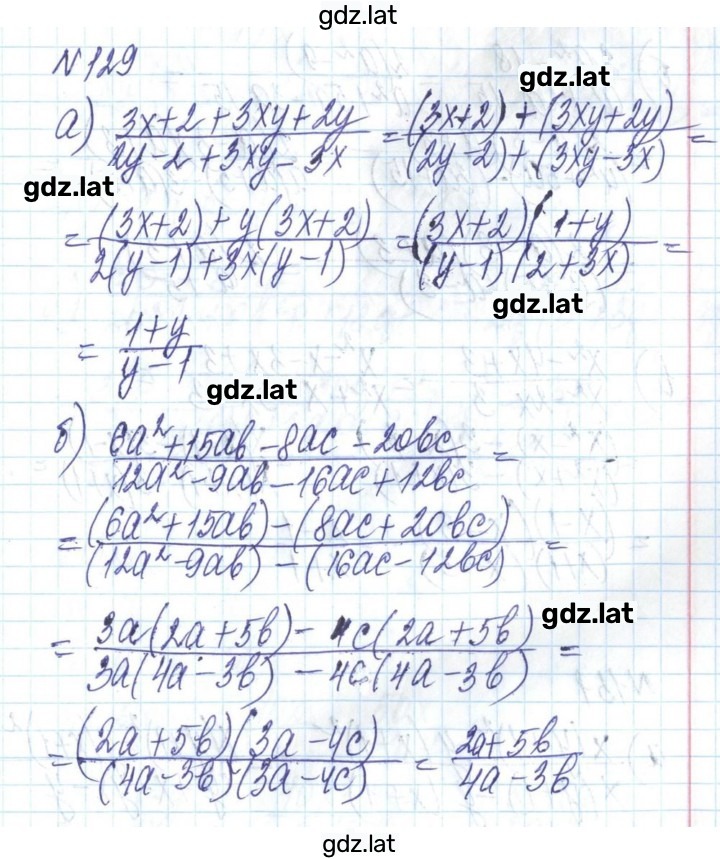 gdz.lat
№129
gdz.lat
а) (3x+2+3xy+2y)/(2y-2+3xy-3x) = ((3x+2)+(3xy+2y))/((2y-2)+(3xy-3x)) =
gdz.lat
= ((3x+2)+y(3x+2))/(2(y-1)+3x(y-1)) = ((3x+2)(1+y))/((y-1)(2+3x)) =
gdz.lat
= (1+y)/(y-1)
gdz.lat
б) (6a²+15ab-8ac-20bc)/(12a²-9ab-16ac+12bc) =
= ((6a²+15ab)-(8ac+20bc))/((12a²-9ab)-(16ac-12bc)) =
gdz.lat
= (3a(2a+5b)-4c(2a+5b))/(3a(4a-3b)-4c(4a-3b)) =
= ((2a+5b)(3a-4c))/((4a-3b)(3a-4c)) = (2a+5b)/(4a-3b)
gdz.lat